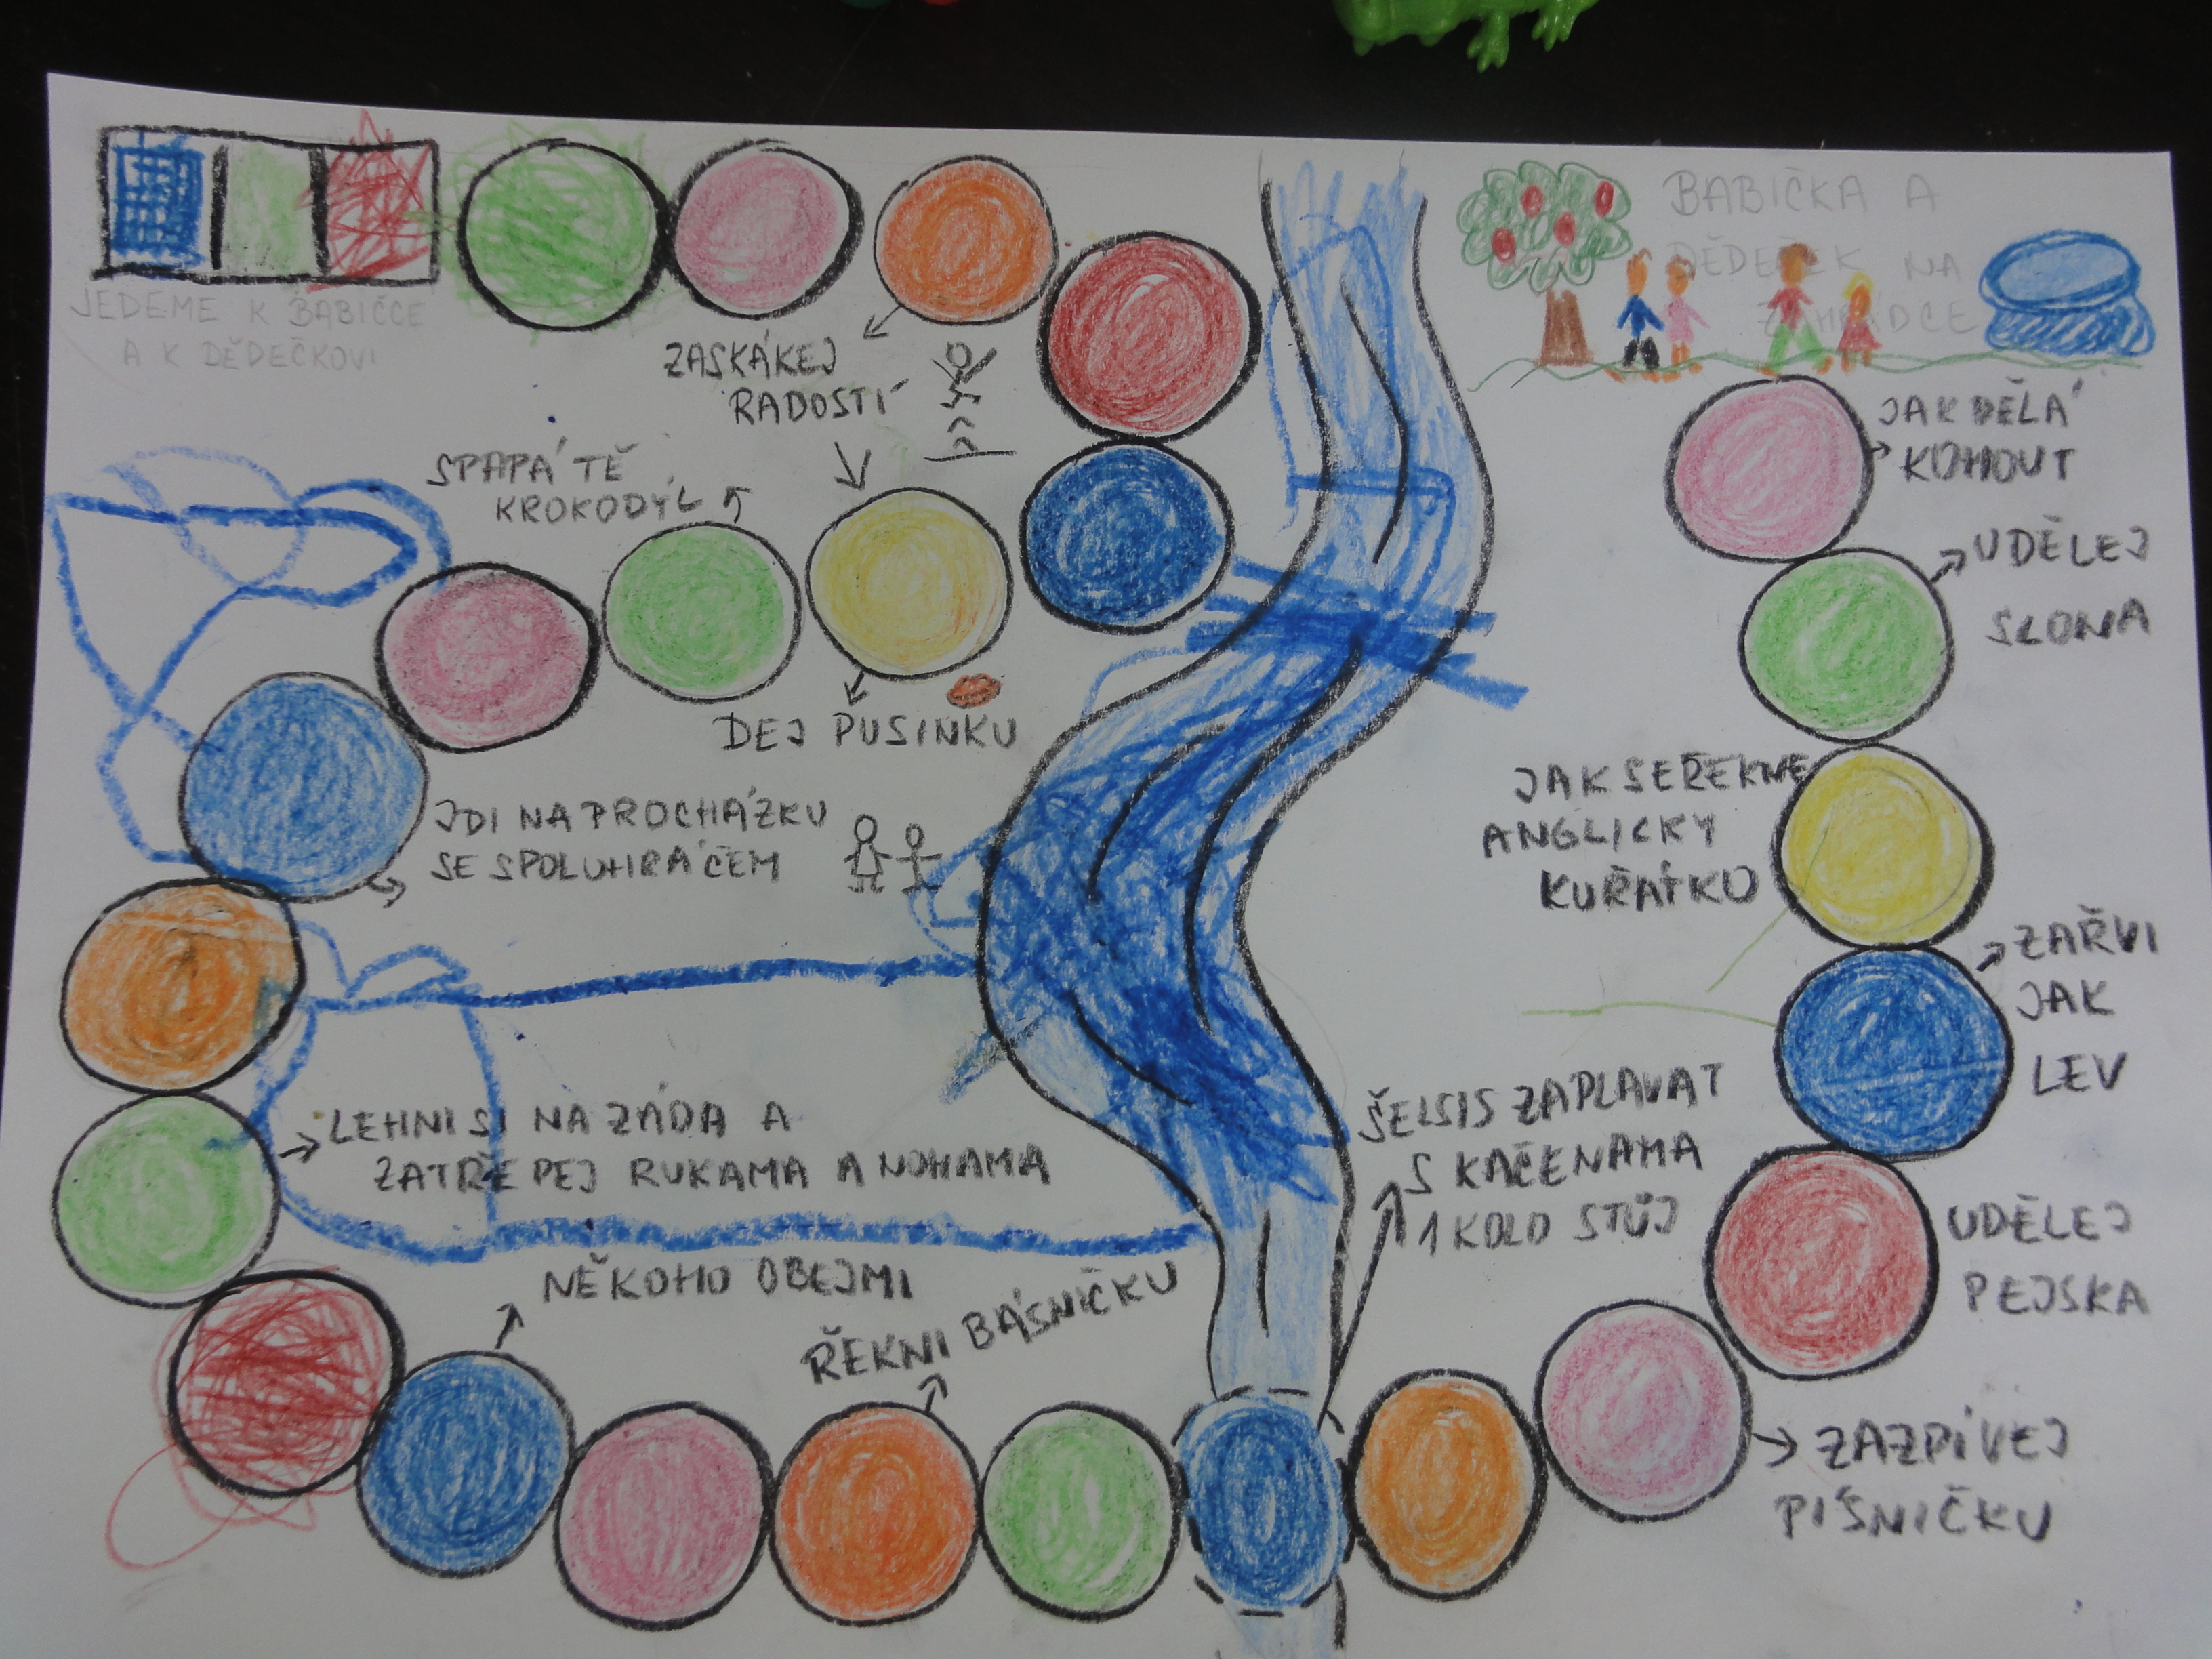 JEDEME K BABIČCE
A K DĚDEČKOVI
BABIČKA A
DĚDEČEK NA
ZAHRÁDCE
ZASKÁKEJ
RADOSTÍ
SPAPÁ TĚ
KROKODÝL
DEJ PUSINKU
JDI NA PROCHÁZKU
SE SPOLUHRÁČEM
LEHNI SI NA ZÁDA A
ZATŘEPEJ RUKAMA A NOHAMA
NĚKOHO OBEJMI
ŘEKNI BÁSNIČKU
ŠEL SIS ZAPLAVAT
S KAČENAMA
1 KOLO STŮJ
ZAZPÍVEJ
PÍSNIČKU
UDĚLEJ
PEJSKA
ZAŘVI
JAK
LEV
JAK SE ŘEKNE
ANGLICKY
KUŘÁTKO
UDĚLEJ
SLONA
JAK DĚLÁ
KOHOUT